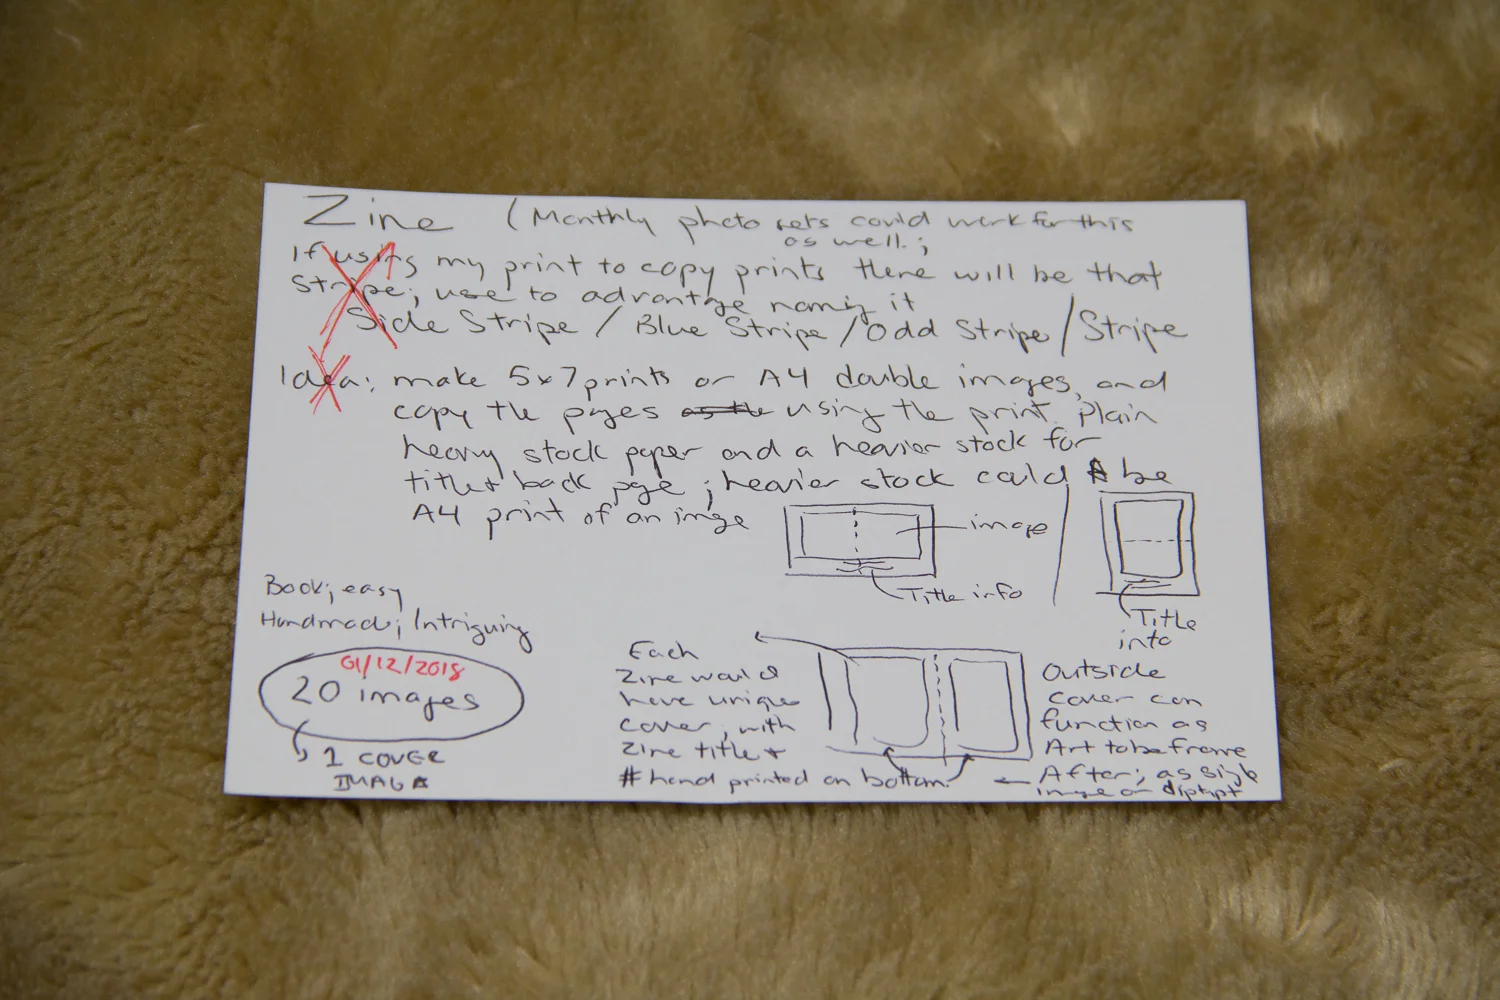 Zine (Monthly photo sets could work for this
as well.;
If using my print to copy prints there will be that
Stripe; use to advantage naming it
Side Stripe / Blue Stripe / Odd Stripe / Stripe
Idea: make 5x7 prints or A4 double images, and
copy the pages as the using the print. Plain
heavy stock paper and a heavier stock for
title + back page; heavier stock could be
A4 print of an image
image
Title info
Title
info
Book; easy
Handmade; Intriguing
01/12/2018
20 images
1 COVER
IMAGE
Each
Zine would
have unique
cover, with
Zine title +
# hand printed on bottom.
Outside
cover can
function as
Art to be frame
After; as single
image or diptypt